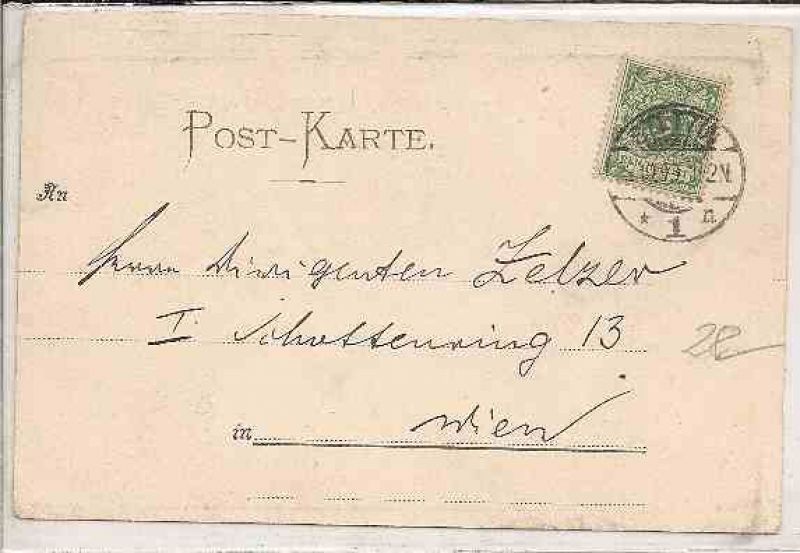 POST-KARTE.
An
Herrn Dirigenten Zelzer
I. Schottenring 13
in Wien
28
2N.
* 1 n